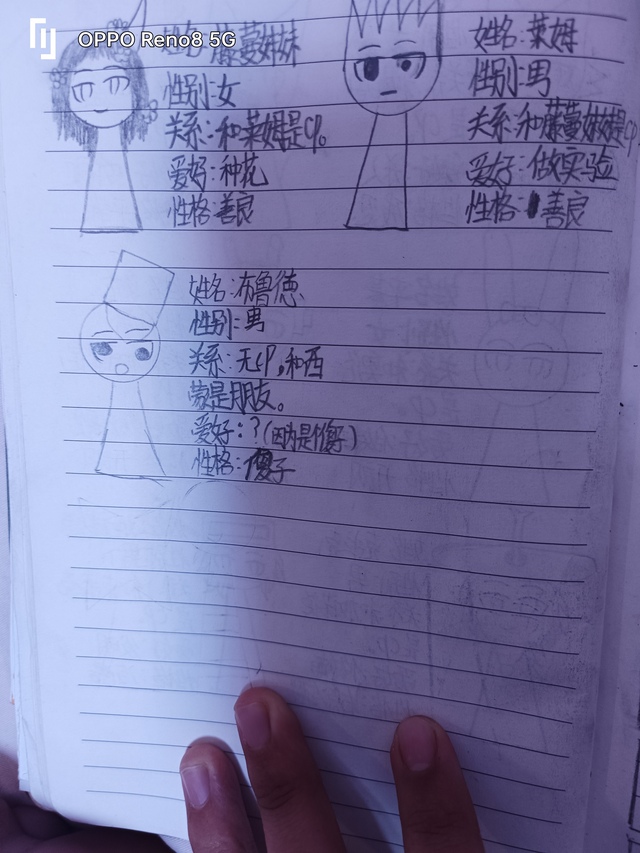 OPPO Reno8 5G
姓名:藤蔓妹妹
性别:女
关系:和莱姆是CP。
爱好:种花
性格:善良
姓名:莱姆
性别:男
关系:和藤蔓妹妹是CP
爱好:做实验
性格:善良
姓名:布鲁德
性别:男
关系:无CP,和西
蒙是朋友。
爱好:?(因为是傻子)
性格:傻子